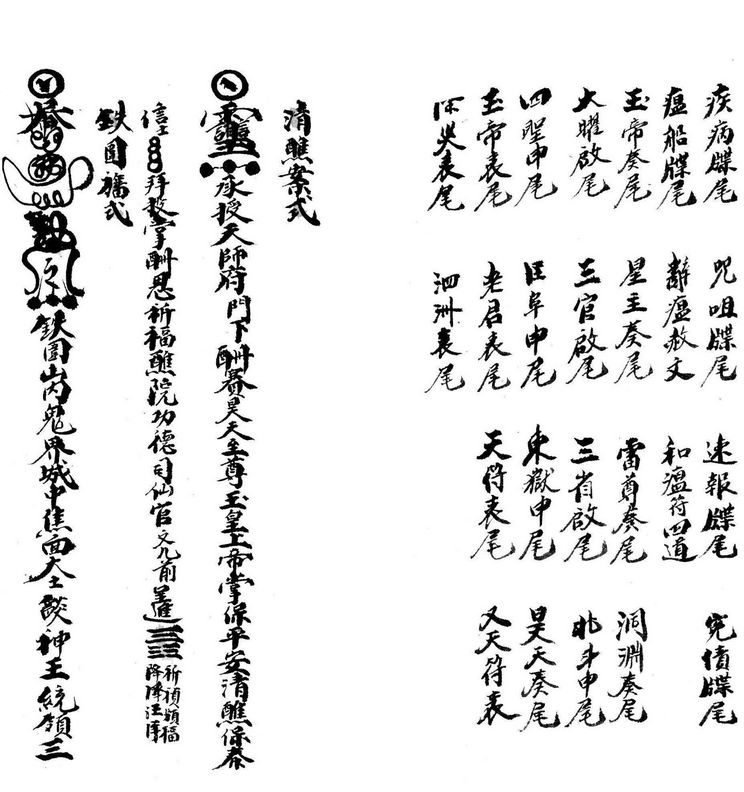 疾病牒尾 咒咀牒尾 速報牒尾 冤債牒尾
瘟船牒尾 辭瘟赦文 和瘟符四道
玉帝奏尾 星主奏尾 雷尊奏尾 洞淵奏尾
大曜啟尾 三官啟尾 三省啟尾 北斗申尾
四聖申尾 匡阜申尾 東嶽申尾 昊天奏尾
玉帝表尾 老君表尾 天符表尾 又天符表
災表尾 泗洲表尾
清醮案式
承授天師府門下酬賽昊天至尊玉皇上帝掌保平安清醮保泰
信士 拜投掌酬恩祈福醮院功德司仙官文几前
鉄圍旛式
鉄圍山內鬼界城中焦面大士燄神王統領三